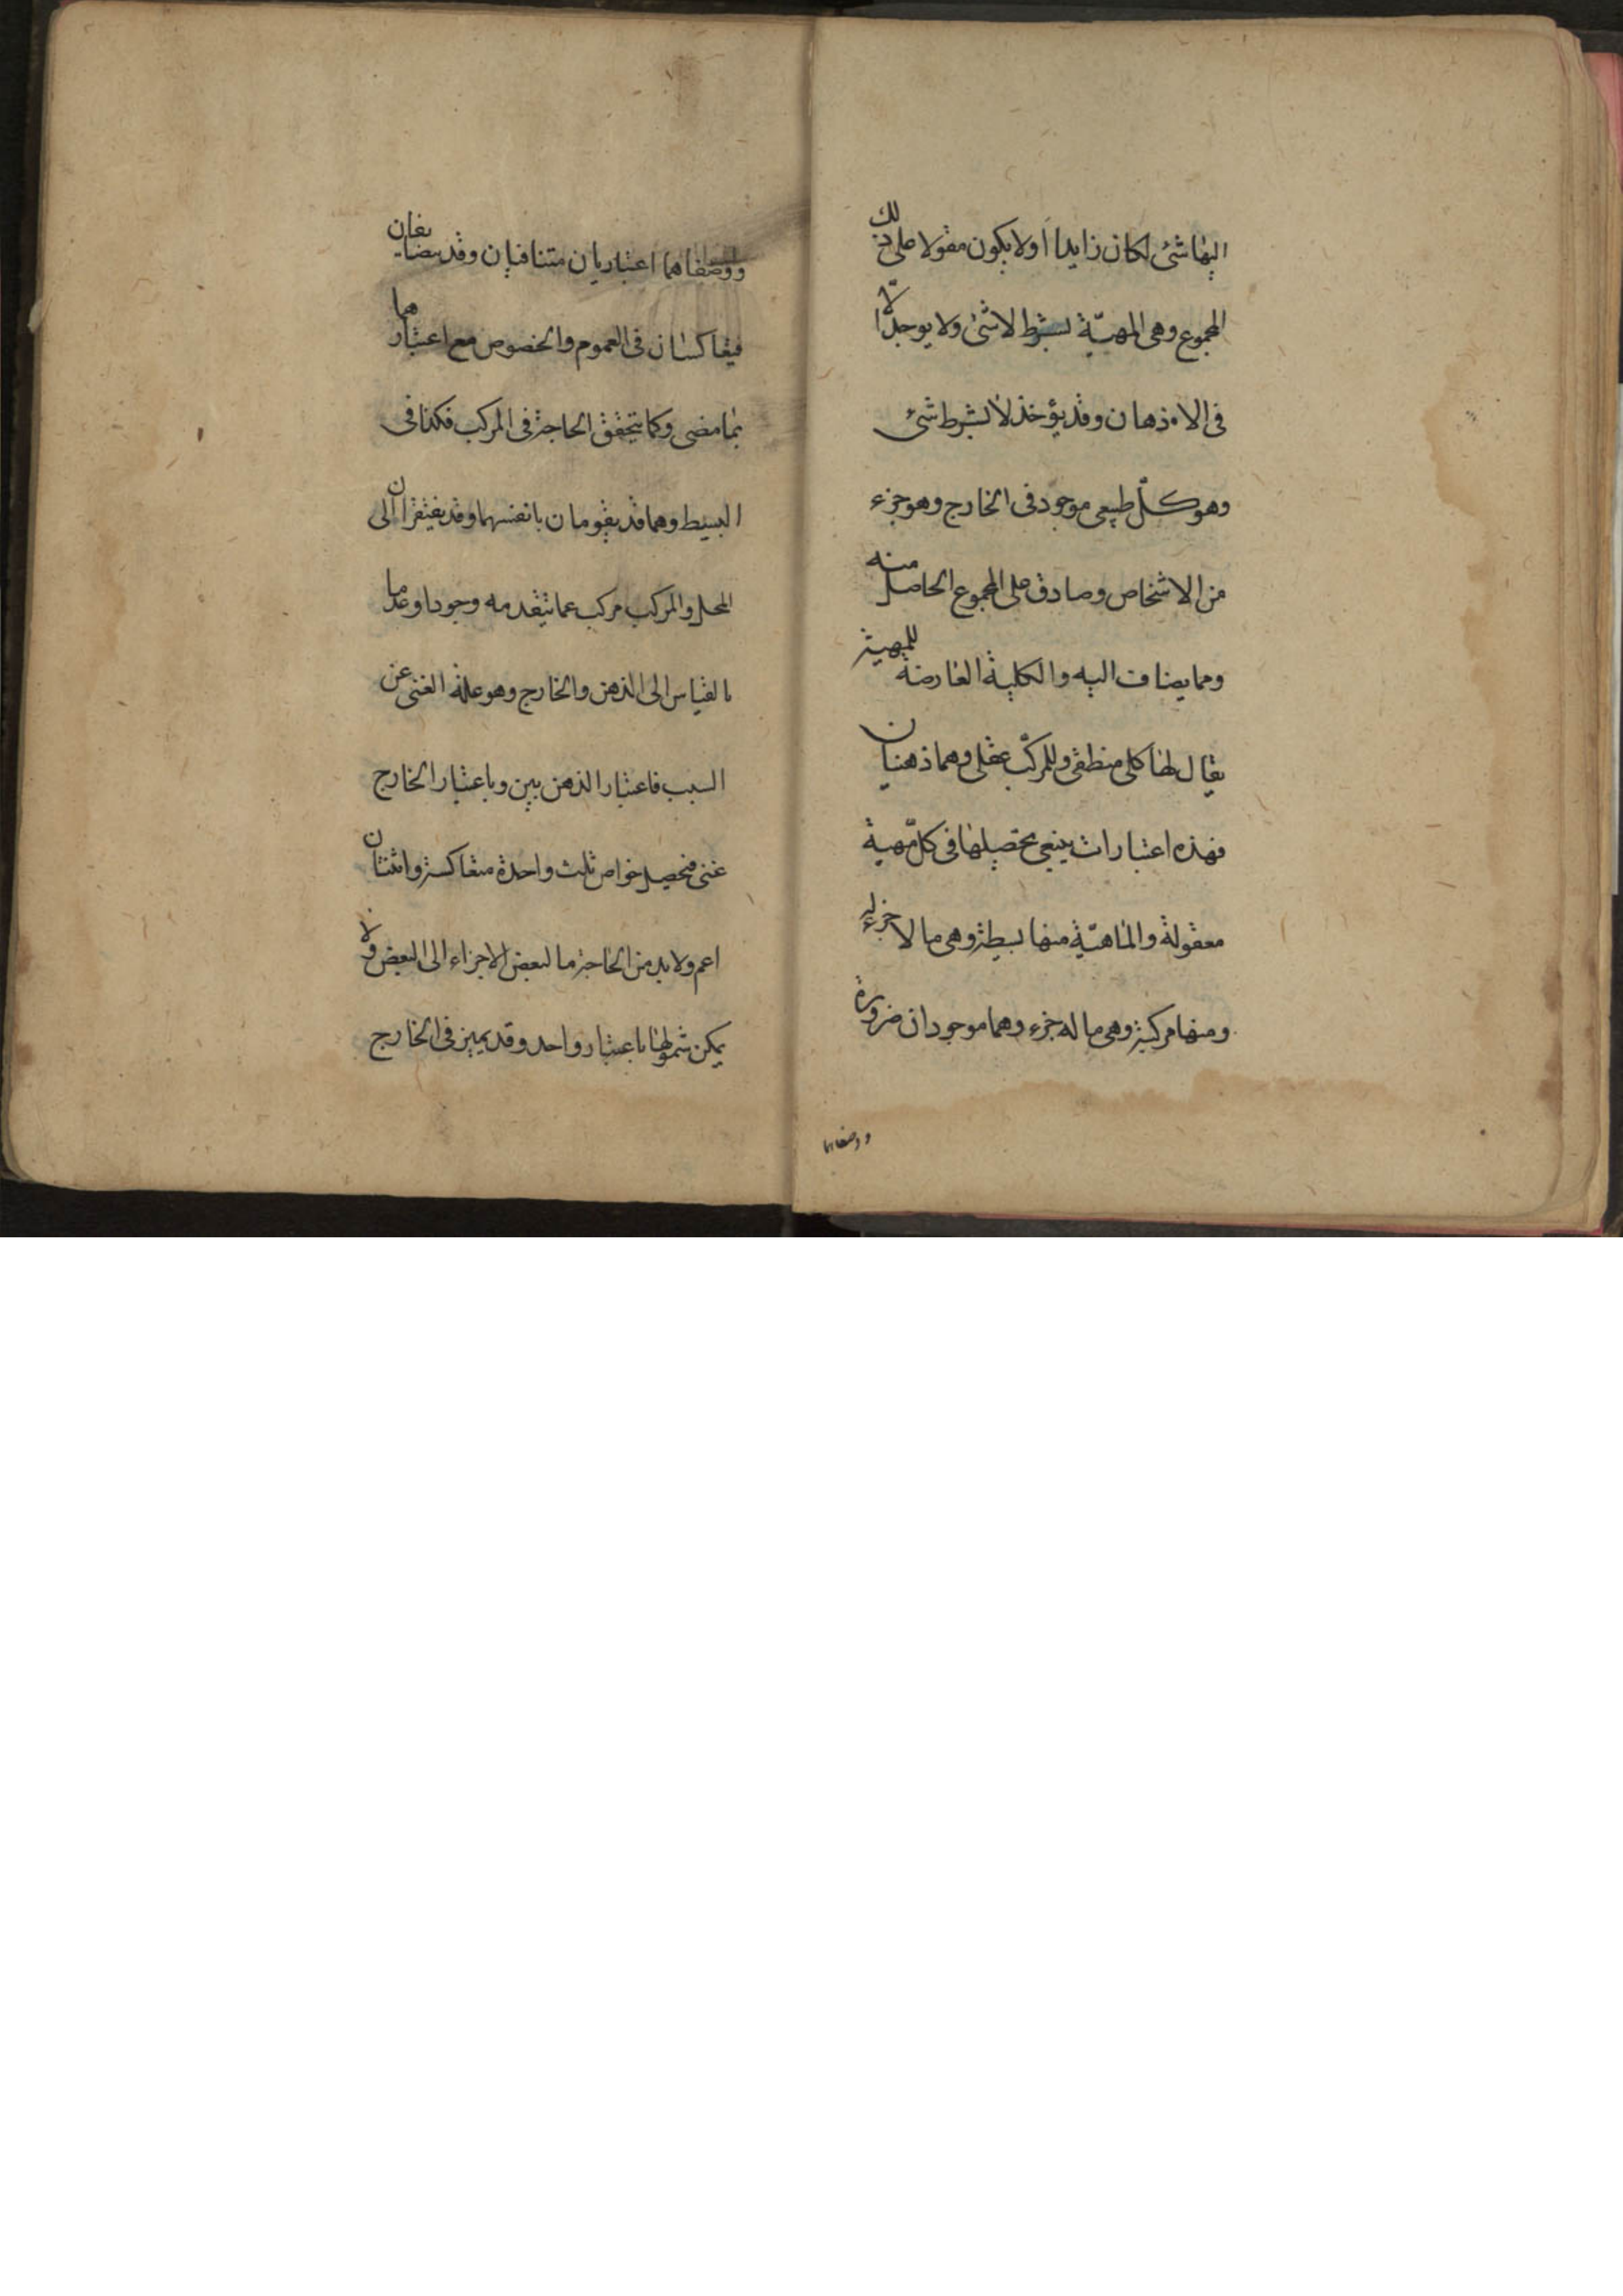 اليها شئ لكان زايدا اولا يكون مقولا على ذلك
المجموع وهى المهيّة بشرط لا شئ ولا يوجد الّا
فى الاذهان وقد يؤخذ لا بشرط شئ
وهو كلّ طبيعى موجود فى الخارج وهو جزء
من الاشخاص وصادق على المجموع الحاصل منه
ومما يضاف اليه والكلية العارضة للمهية
يقال لها كلى منطقى وللمركّب عقلى وهما ذهنيان
فهذه اعتبارات ينبغى تحصيلها فى كل مّهية
معقولة والماهيّة منها بسيطة وهى ما لا جزء له
ومنها مركبة وهى ما له جزء وهما موجودان ضرورة
ووصفاهما
ووصفاهما اعتباريان متنافيان وقد يتضايفان
فيتعاكسان فى العموم والخصوص مع اعتبارهما
بما مضى وكما يتحقق الحاجة فى المركب فكذا فى
البسيط وهما قد يقومان بانفسهما وقد يفتقران الى
المحل والمركب مركب عما يتقدمه وجودا وعدما
بالقياس الى الذهن والخارج وهو علة الغنى عن
السبب فاعتبار الذهن بين وباعتبار الخارج
غنى فتحصيل خواص ثلث واحدة متعاكسة واثنتان
اعم ولا بد من الحاجة ما لبعض الاجزاء الى البعض ولا
يمكن شمولها باعتبار واحد وقد يميز فى الخارج